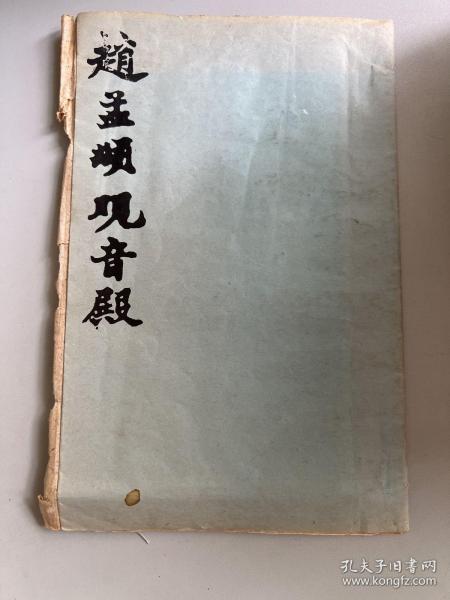 趙孟頫观音殿
孔夫子旧书网
www.kongfz.com